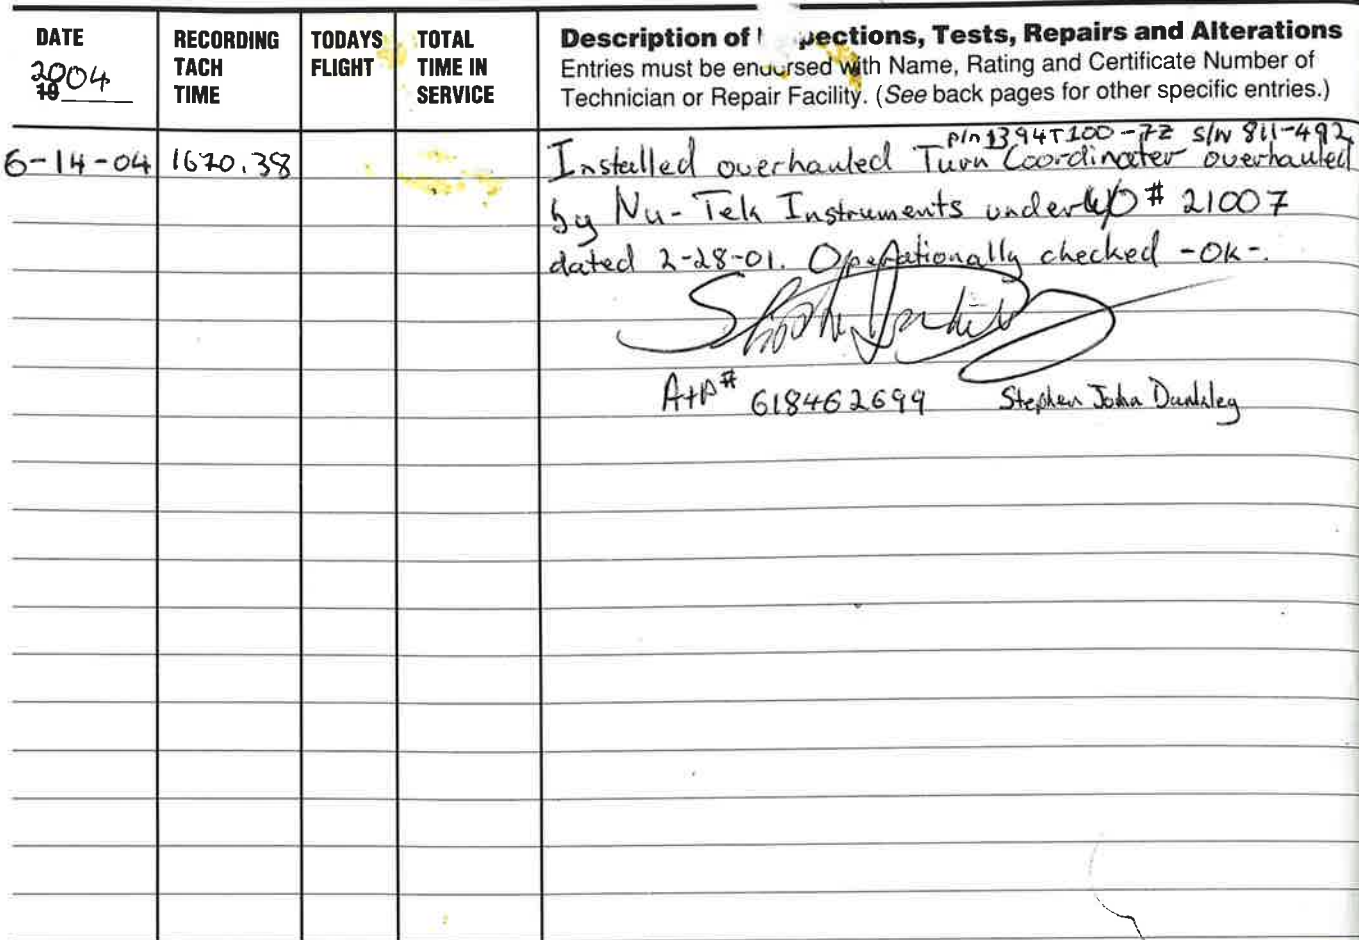 DATE
2004
19
RECORDING TACH TIME
TODAYS FLIGHT
TOTAL TIME IN SERVICE
Description of pections, Tests, Repairs and Alterations
Entries must be endorsed with Name, Rating and Certificate Number of
Technician or Repair Facility. (See back pages for other specific entries.)
p/n 1394T100-7Z S/N 811-492
6-14-04 1670.38 Installed overhauled Turn Coordinator overhauled
by Nu-Tek Instruments under W/O # 21007
dated 2-28-01. Operationally checked -OK-.
A+P# 618462699 Stephen John Dunkley